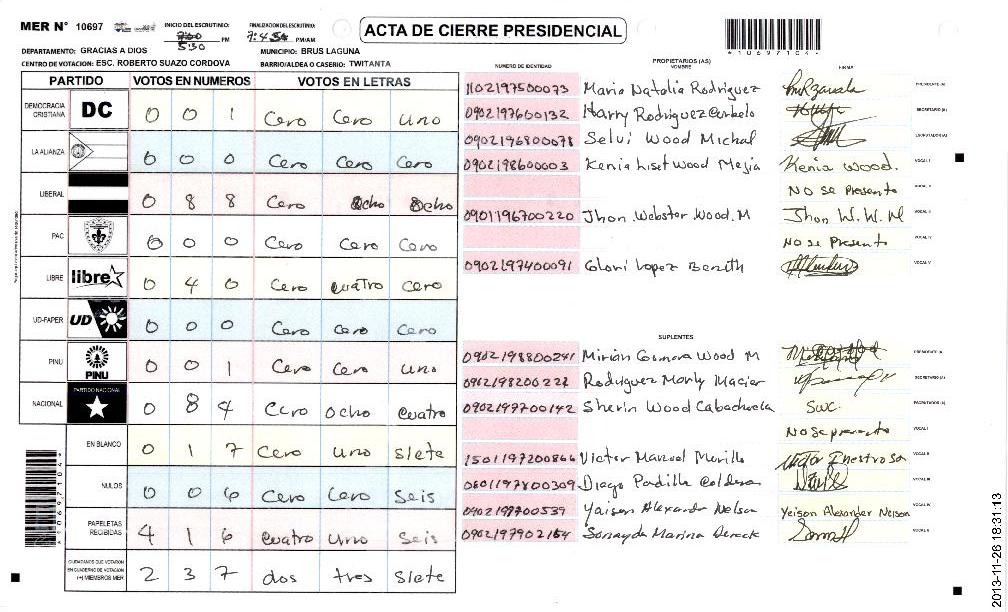 MER N° 10697
INICIO DEL ESCRUTINIO: 7:00 5:30 PM
FINALIZACION DEL ESCRUTINIO: 7:4:54 PM/AM
ACTA DE CIERRE PRESIDENCIAL
*10697104*
DEPARTAMENTO: GRACIAS A DIOS MUNICIPIO: BRUS LAGUNA
CENTRO DE VOTACION: ESC. ROBERTO SUAZO CORDOVA BARRIO/ALDEA O CASERIO: TWITANTA
PARTIDO VOTOS EN NUMEROS VOTOS EN LETRAS
DEMOCRACIA CRISTIANA DC 0 0 1 Cero Cero uno
LA ALIANZA 0 0 0 Cero Cero Cero
LIBERAL 0 8 8 Cero Ocho Ocho
PAC 0 0 0 Cero Cero Cero
LIBRE libre 0 4 0 Cero cuatro cero
UD-FAPER UD 0 0 0 Cero Cero Cero
PINU PINU 0 0 1 Cero Cero uno
NACIONAL PARTIDO NACIONAL 0 8 4 Cero ocho cuatro
EN BLANCO 0 1 7 Cero uno siete
NULOS 0 0 6 Cero Cero Seis
PAPELETAS RECIBIDAS 4 1 6 cuatro uno Seis
CIUDADANOS QUE VOTARON EN CUADERNO DE VOTACION (+) MIEMBROS MER 2 3 7 dos tres siete
*10697104*
PROPIETARIOS (AS)
NUMERO DE IDENTIDAD NOMBRE FIRMA
1102197500073 Maria Natalia Rodriguez PRESIDENTE (A)
0902197600132 Harry Rodriguez SECRETARIO (A)
0902196800078 Selvi Wood Michal ESCRUTADOR (A)
0902198600003 Kenia Liset Wood Mejia Kenia Wood. VOCAL I
No se Presento VOCAL II
0901196700220 Jhon Webster Wood. M Jhon W. W. M VOCAL III
No se Presento VOCAL IV
0902197400091 Glori Lopez VOCAL V
SUPLENTES
0902198800241 Mirian Wood M PRESIDENTE (A)
0902198200227 Rodriguez Morly SECRETARIO (A)
0902199700142 Sherin Wood SWC. ESCRUTADOR (A)
No se presento VOCAL I
1501197200866 Victor Manuel Murillo VOCAL II
0601197800309 Diego Padilla VOCAL III
0902199700539 Yaison Alexander Nelson Yeison Alexander Nelson VOCAL IV
0902197902154 Sonayda Marina VOCAL V
2013-11-26 18:31:13